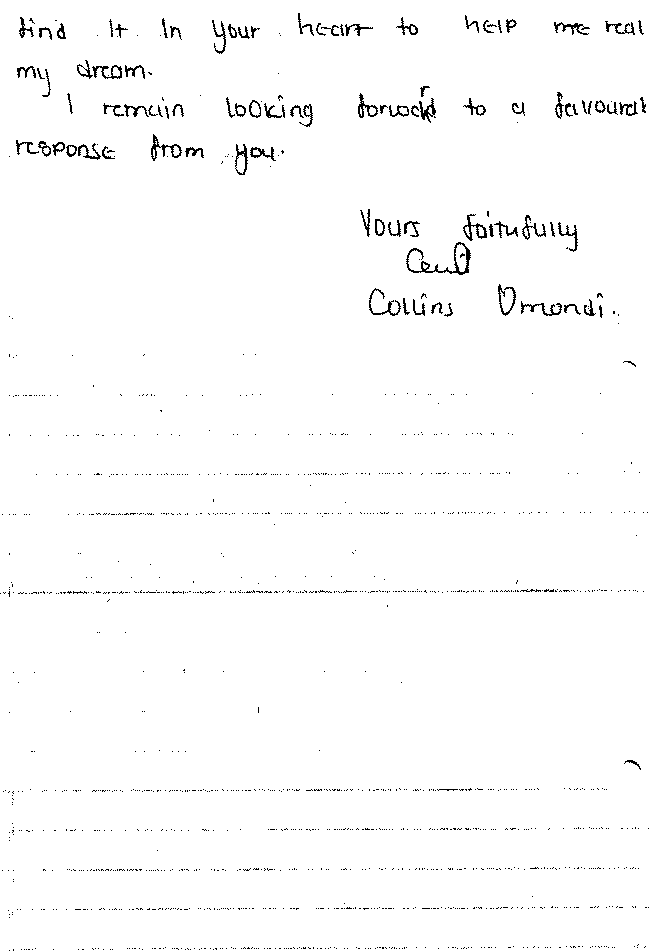 find it in your heart to help me real
my dream.
I remain looking forward to a favourat
response from you.
Yours faithfully
Collins Omondi.